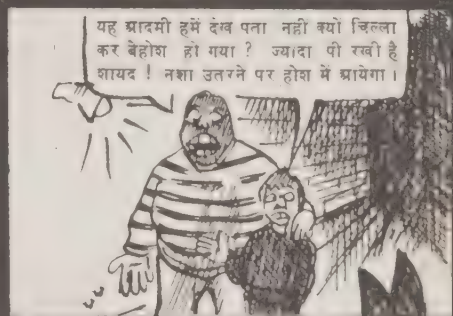 यह आदमी हमें देख पता नही क्यों चिल्ला
कर बेहोश हो गया ? ज्यादा पी रखी है
शायद ! नशा उतरने पर होश में आयेगा ।